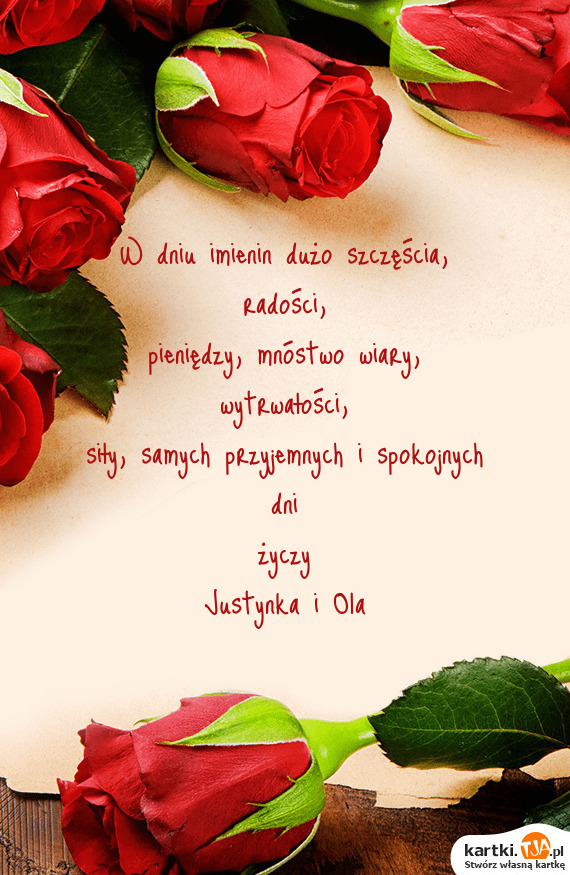 W dniu imienin dużo szczęścia,
radości,
pieniędzy, mnóstwo wiary,
wytrwałości,
siły, samych przyjemnych i spokojnych
dni
życzy
Justynka i Ola
kartki.TJA.pl
Stwórz własną kartkę